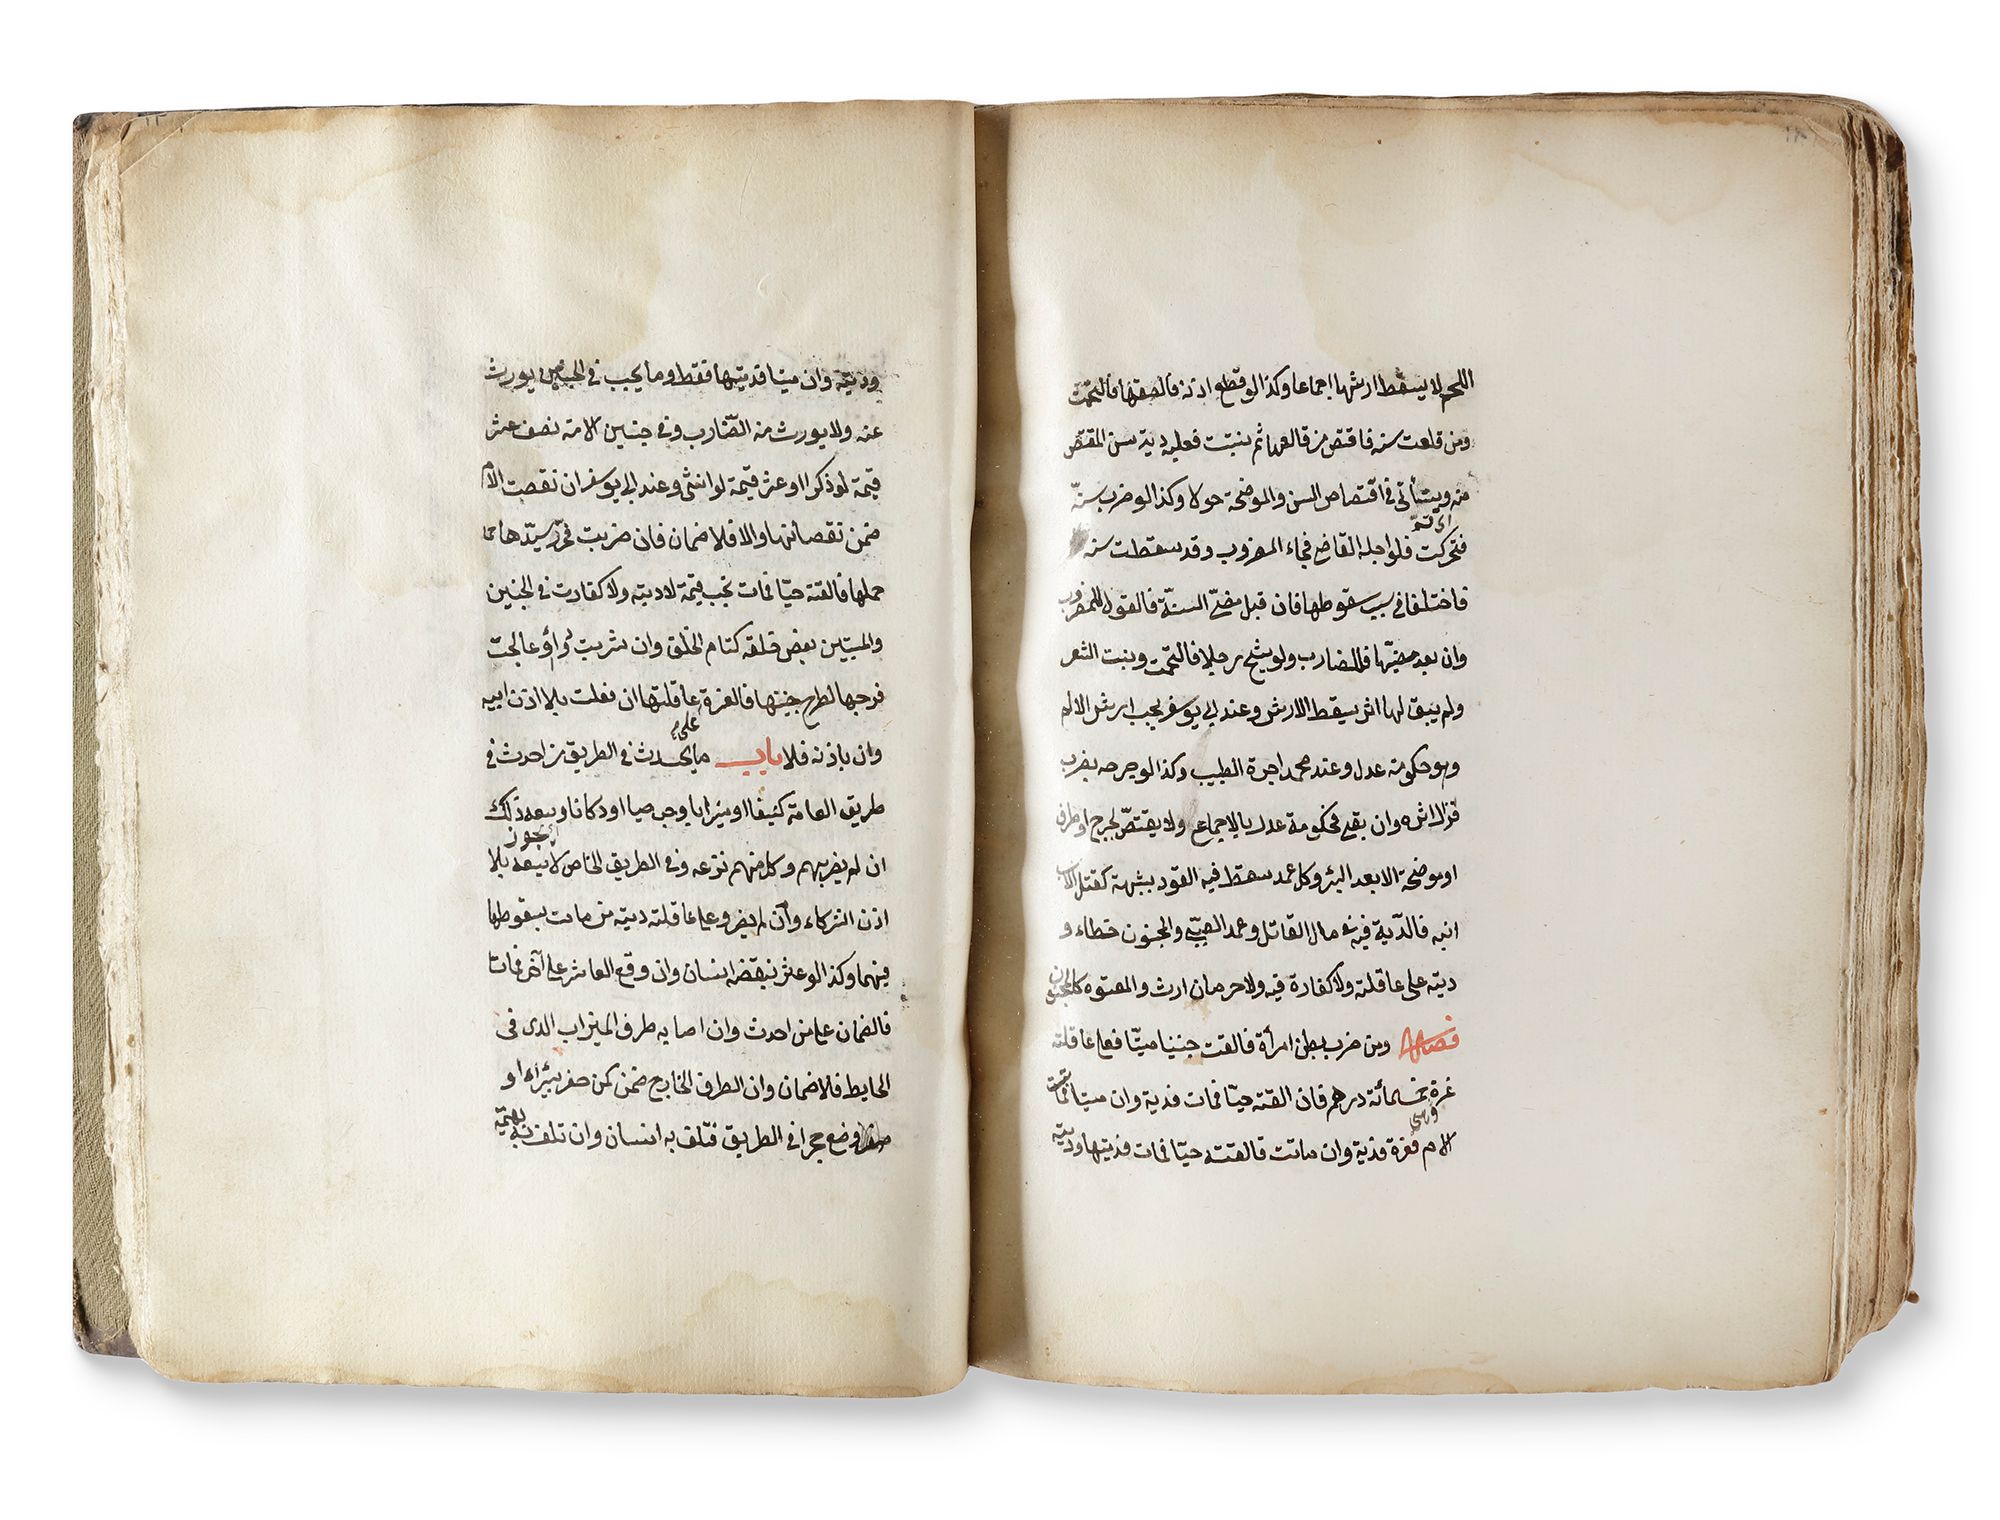 اللحم لا يسقط ارشها اجماعا وكذا لو قطع اذنه فالصقها فالتحمت
ومن قلعت سنه فاقتص من قالعها ثم نبتت فعليه دية سن المقتص
منه ويستأنى في اقتصاص السن والموضحة حولا وكذا لو ضرب سنّه
فتحركت فلو اجله القاضى فجاء المضروب وقد سقطت سنه
فاختلفا في سبب سقوطها فان قبل مضىّ السنة فالقول للمضروب
وان بعد مضيّها فللضارب ولو شج رجلا فالتحمت ونبت الشعر
ولم يبق لها اثر يسقط الارش وعند ابي يوسف يجب ارش الالم
وهو حكومة عدل وعند محمد اجرة الطبيب وكذا لو جرحه بضرب
فزال اثره وان بقى فحكومة عدل بالاجماع ولا يقتص لجرح او طرف
او موضحة الا بعد البرء وكل عمد سقط فيه القود بشبهة كقتل الاب
ابنه فالدّية فيه في مال القاتل وعمد الصبىّ والمجنون خطاء و
ديته على عاقلته ولا كفارة فيه ولا حرمان ارث والمعتوه كالمجنون
فصل ومن ضرب بطن امرأة فالقت جنينا ميتّا فعلى عاقلته
غرة خمسمائة درهم فان القته حيّا فمات فدية وان ميتا فماتت
الام فغرة ودية وان ماتت فالقته حيّا فمات فديتها وديته
وديته وان ميتا فديتها فقط وما يجب في الجنين يورث
عنه ولا يورث منه الضّارب وفي جنين الامة نصف عشر
قيمة لو ذكرا او عشر قيمة لو انثى وعند ابي يوسف ان نقصت الام
ضمن نقصانها والا فلا ضمان فان ضربت فحرّر سيّدها
حملها فالقته حيّا فمات تجب قيمة لا ديته ولا كفارت في الجنين
والمستبين بعض خلقه كتام الخلق وان شربت دواء او عالجت
فرجها لطرح جنينها فالغرة على عاقلتها ان فعلت بلا اذن ابيه
وان باذنه فلا باب ما يحدث في الطريق من احدث في
طريق العامة كنيفا او ميزابا وجرصنا او دكانا وسعه ذلك
ان لم يضر بهم وكل منهم نزعه وفي الطريق الخاص لا يسعه بلا
يجوز
اذن الشركاء وان لم يضر وعلى عاقلته دية من مات بسقوطها
فيهما وكذا لو عثر بنقضه انسان وان وقع العاثر على آخر فماتا
فالضمان على من احدث وان اصابه طرف الميزاب الذى فى
الحايط فلا ضمان وان الطرف الخارج ضمن كمن حفر بئرا او
وضع حجرا في الطريق فتلف به انسان وان تلف به بهيمة